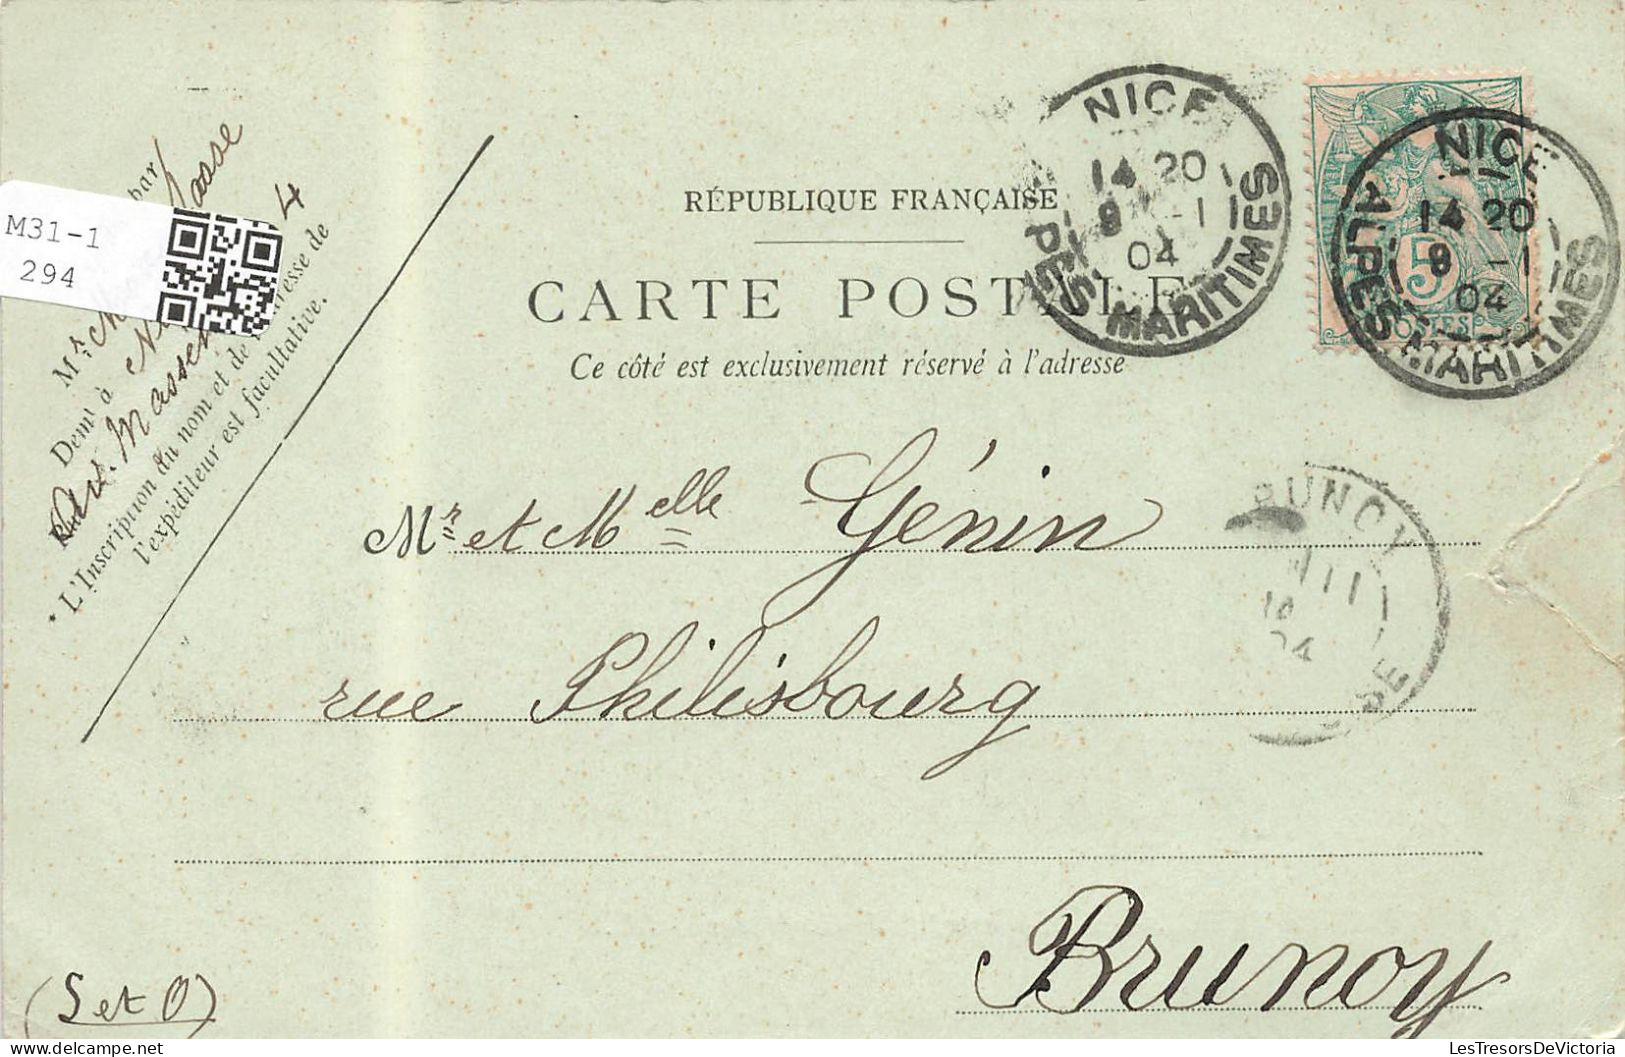 RÉPUBLIQUE FRANÇAISE
CARTE POSTALE
Ce côté est exclusivement réservé à l'adresse
NICE
14 20
9 -1
04
PES MARITIMES
NICE
14 20
9 -1
04
ALPES MARITIMES
5
POSTES
M31-1
294
Mr
Demt à
4
* L'Inscription du nom et de l'adresse de
l'expéditeur est facultative.
Mr et Melle Génin
rue Philisbourg
Brunoy
(S et O)
BRUNOY
11
04
OISE
LesTresorsDeVictoria